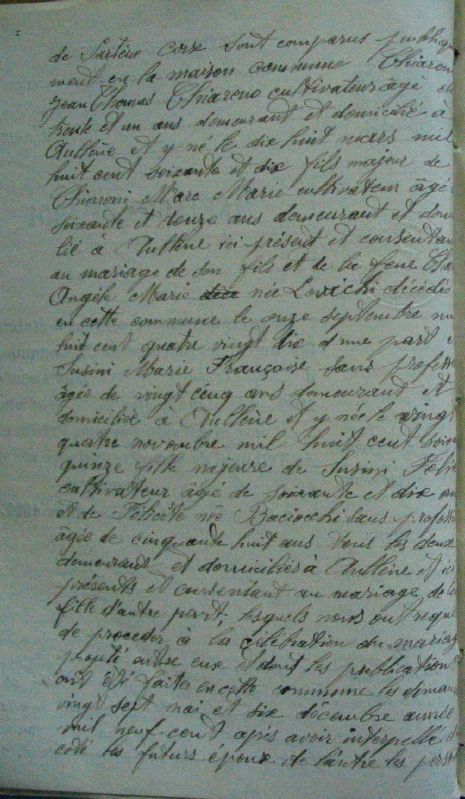 de Sartène Corse sont comparus publique
ment en la maison commune Chiaroni
Jean Thomas Chiaroni cultivateur âgé de
trente et un ans demeurant et domicilié à
Aullène et y né le dix huit mars mil
huit cent soixante et dix fils majeur de
Chiaroni Marc Marie cultivateur âgé
soixante et douze ans demeurant et domi
lié à Aullène ici présent et consentant
au mariage de son fils et de la feue Chia
Angèle Marie née décédée
en cette commune le onze septembre mil
huit cent quatre vingt dix d'une part et
Susini Marie Françoise sans profess
âgée de vingt cinq ans demeurant et
domiciliée à Aullène et y née le vingt
quatre novembre mil huit cent soixan
quinze fille majeure de Susini
cultivateur âgé de soixante et dix ans
et de Félicité née Baciocchi sans profess
âgée de cinquante huit ans tous les deux
demeurant et domiciliés à Aullène et ici
présents et consentant au mariage de la
fille d'autre part, lesquels nous ont requis
de procéder à la célébration du mariage
projeté entre eux et dont les publications
ont été faites en cette commune les dimanc
vingt sept mai et dix décembre année
mil neuf cent après avoir interpellé
côté les futurs époux de l'autre les person